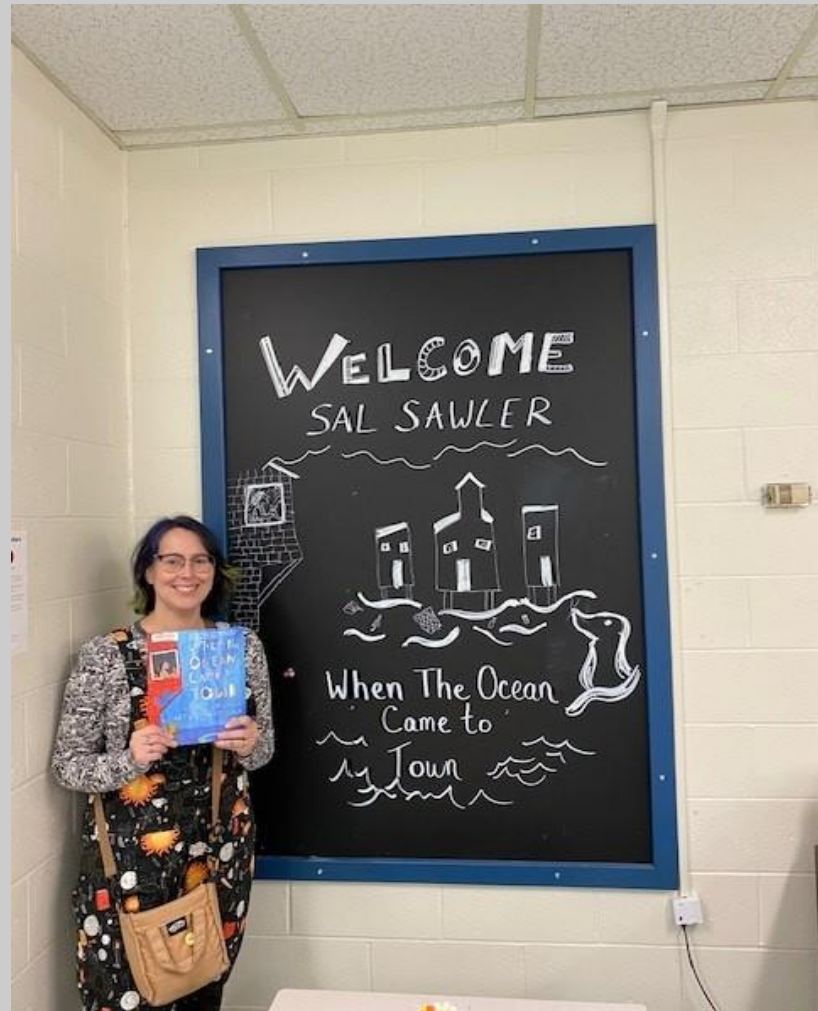 WELCOME
SAL SAWLER
When The Ocean
Came to
Town
WHEN THE
OCEAN
CAME TO
TOWN